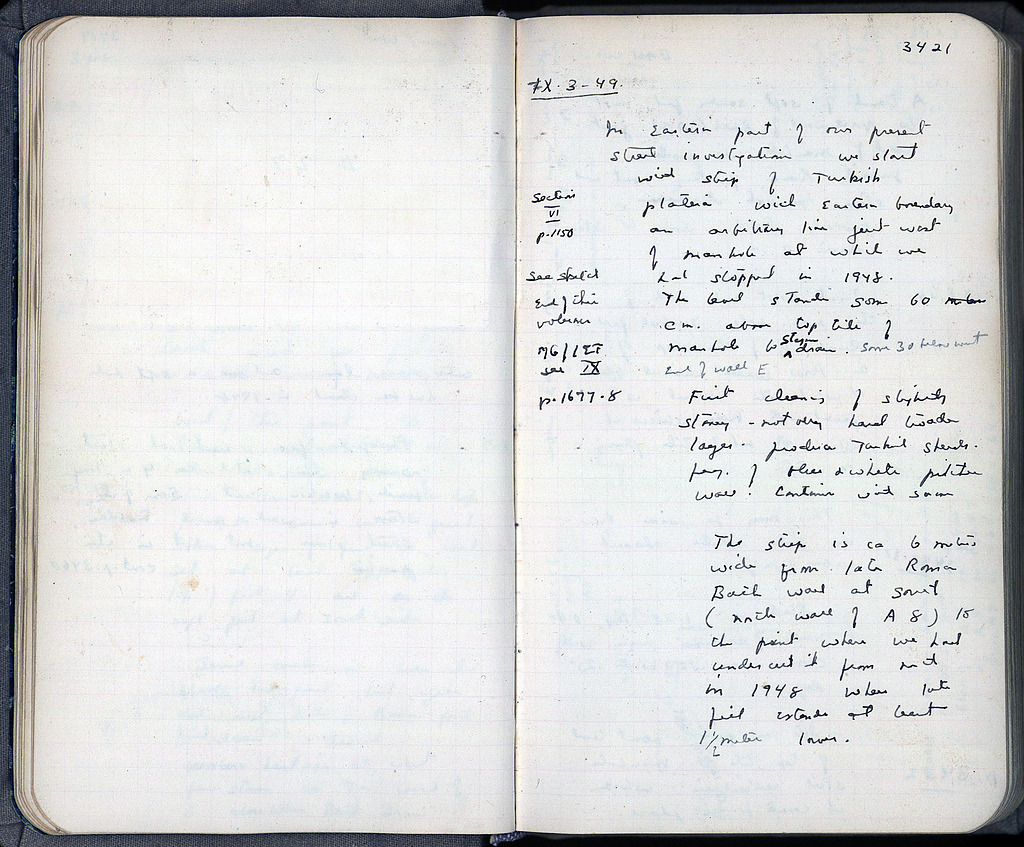 3421
IX. 3-49.
In Eastern part of our present
street investigation we start
with strip of Turkish
Section
VI
p. 1150
plateia with Eastern boundary
an arbitrary line just west
of manhole at which we
see sketch
had stopped in 1948.
End of this
volume
The level stands some 60
cm. above top tile of
see IX
manhole to Stygian drain. some 30 below west
end of wall E
p. 1697-8
First cleaning of slightly
stoney - not very hard
layer produces Turkish sherds.
frag. of blue & white pitcher
ware. Continue with same
The strip is ca 6 metres
wide from late Roman
Bath wall at south
(north wall of A 8) to
the point where we had
undercut it from
in 1948 where late
fill extends at least
1 1/2 metre lower.